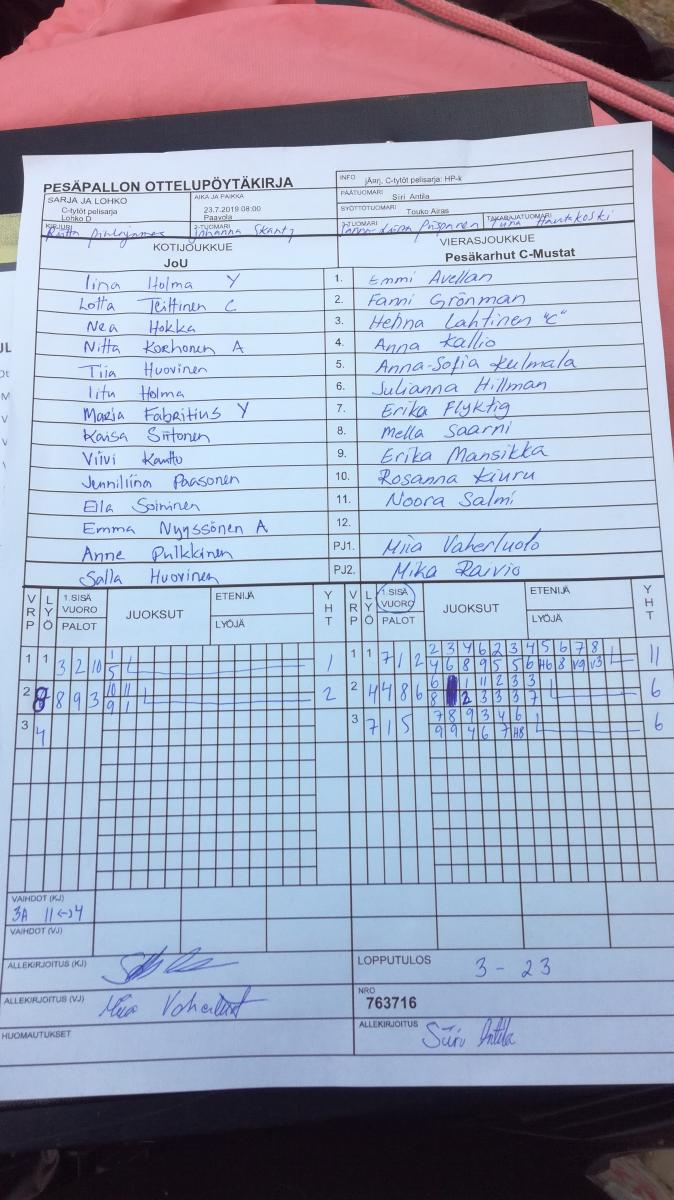 PESÄPALLON OTTELUPÖYTÄKIRJA
INFO jÄrj. C-tytöt pelisarja: HP-k
SARJA JA LOHKO C-tytöt pelisarja Lohko D
AIKA JA PAIKKA 23.7.2019 08:00 Paavola
PÄÄTUOMARI Siri Antila
SYÖTTÖTUOMARI Touko Airas
KIRJURI
2-TUOMARI Johanna
3-TUOMARI
TAKARAJATUOMARI Tiina Hautakoski
KOTIJOUKKUE
JoU
VIERASJOUKKUE
Pesäkarhut C-Mustat
Iina Holma Y 1. Emmi Avellan
Lotta Teittinen C 2. Fanni Grönman
Nea Hokka 3. Helina Lahtinen "C"
Nitta Korhonen A 4. Anna Kallio
Tiia Huovinen 5. Anna-Sofia Kulmala
Iitu Holma 6. Julianna Hillman
Maria Fabritius Y 7. Erika Flyktig
Kaisa Siitonen 8. Mella Saarni
Viivi Kautto 9. Erika Mansikka
Jenniliina Paasonen 10. Rosanna Kiuru
Ella Soininen 11. Noora Salmi
Emma Nyyssönen A 12.
Anne Pulkkinen PJ1. Miia Vaherluoto
Salla Huovinen PJ2. Mika Raivio
VRP LYÖ 1.SISÄ VUORO PALOT JUOKSUT ETENIJÄ LYÖJÄ YHT VRP LYÖ 1.SISÄ VUORO PALOT JUOKSUT ETENIJÄ LYÖJÄ YHT
1 1 3 2 10 1 1 1 1 7 1 2 2 3 4 6 2 3 4 5 6 7 8 11
5 4 6 8 9 5 5 6 H6 8 V9 V3
2 8 9 3 10 11 2 2 4 4 8 6 6 1 11 2 3 3 6
9 1 8 2 3 3 3 7
3 4 3 7 1 5 7 8 9 3 4 6 6
9 9 4 6 7 H8
VAIHDOT (KJ)
3A 11<->4
VAIHDOT (VJ)
ALLEKIRJOITUS (KJ)
LOPPUTULOS 3 - 23
ALLEKIRJOITUS (VJ) Miia Vaherluoto
NRO
763716
HUOMAUTUKSET
ALLEKIRJOITUS Siiri Antila